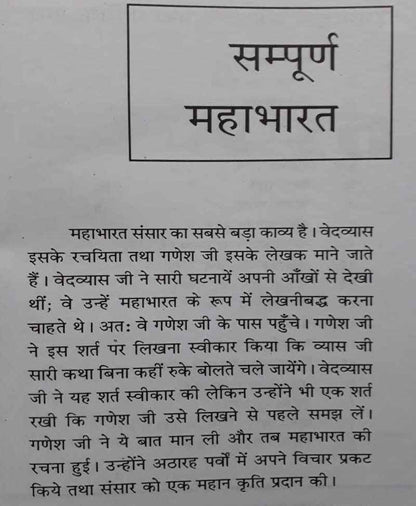 सम्पूर्ण
महाभारत
महाभारत संसार का सबसे बड़ा काव्य है। वेदव्यास
इसके रचयिता तथा गणेश जी इसके लेखक माने जाते
हैं। वेदव्यास जी ने सारी घटनायें अपनी आँखों से देखी
थीं; वे उन्हें महाभारत के रूप में लेखनीबद्ध करना
चाहते थे। अत: वे गणेश जी के पास पहुँचे। गणेश जी
ने इस शर्त पर लिखना स्वीकार किया कि व्यास जी
सारी कथा बिना कहीं रुके बोलते चले जायेंगे। वेदव्यास
जी ने यह शर्त स्वीकार की लेकिन उन्होंने भी एक शर्त
रखी कि गणेश जी उसे लिखने से पहले समझ लें।
गणेश जी ने ये बात मान ली और तब महाभारत की
रचना हुई। उन्होंने अठारह पर्वों में अपने विचार प्रकट
किये तथा संसार को एक महान कृति प्रदान की।